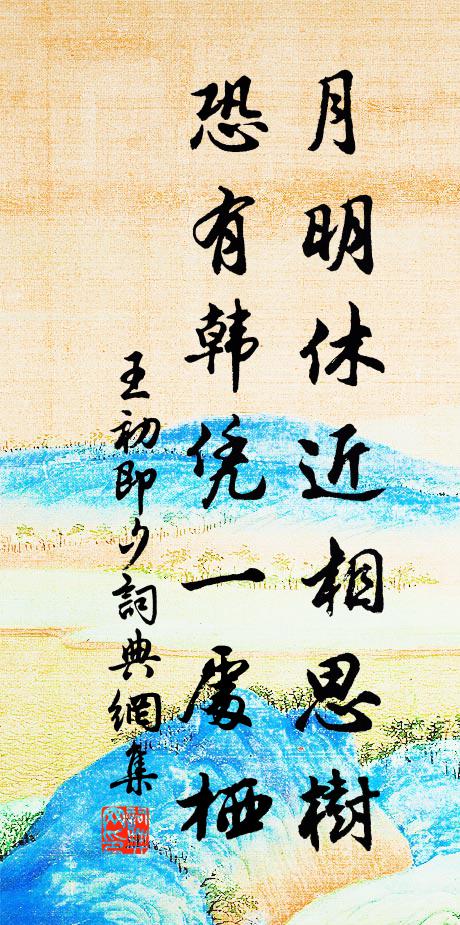 月明休近相思樹
恐有韩凭一處栖
王初即夕詞典網集